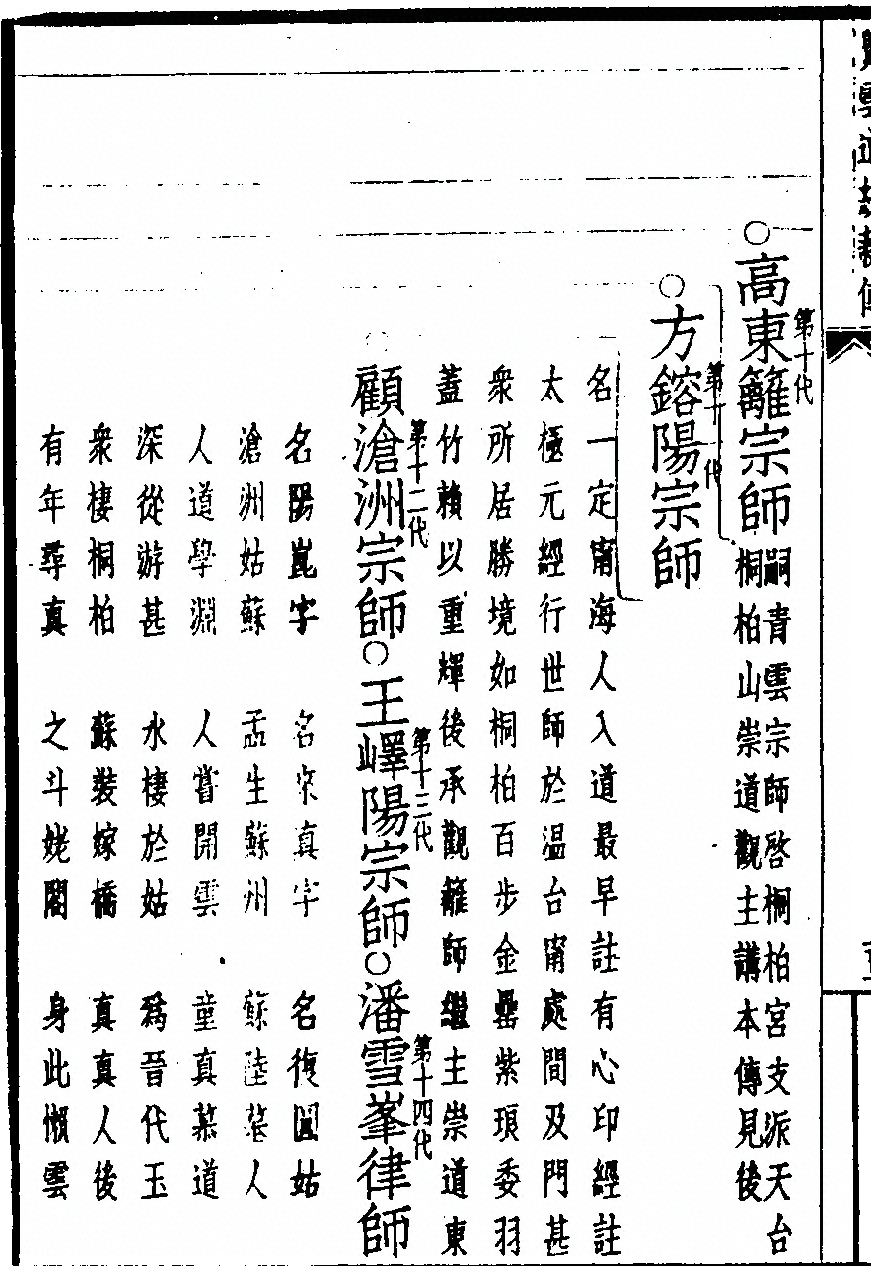 第十代
○高東籬宗師
嗣青雲宗師啓桐柏宮支派天台
桐柏山崇道觀主講本傳見後
第十一代
○方鎔陽宗師
名一定甯海人入道最早註有心印經註
太極元經行世師於温台甯處間及門甚
衆所居勝境如桐柏百步金罍紫瑣委羽
蓋竹賴以重輝後承觀籬師繼主崇道東
第十二代
○顧滄洲宗師
名陽崑字
滄洲姑蘇
人道學淵
深從游甚
衆棲桐柏
有年尋真
第十三代
○王嶧陽宗師
名來真字
孟生蘇州
人嘗開雲
水棲於姑
蘇裝嫁橋
之斗姥閣
第十四代
○潘雪峯律師
名復圓姑
蘇陸墓人
童真慕道
爲晉代玉
真真人後
身此懶雲